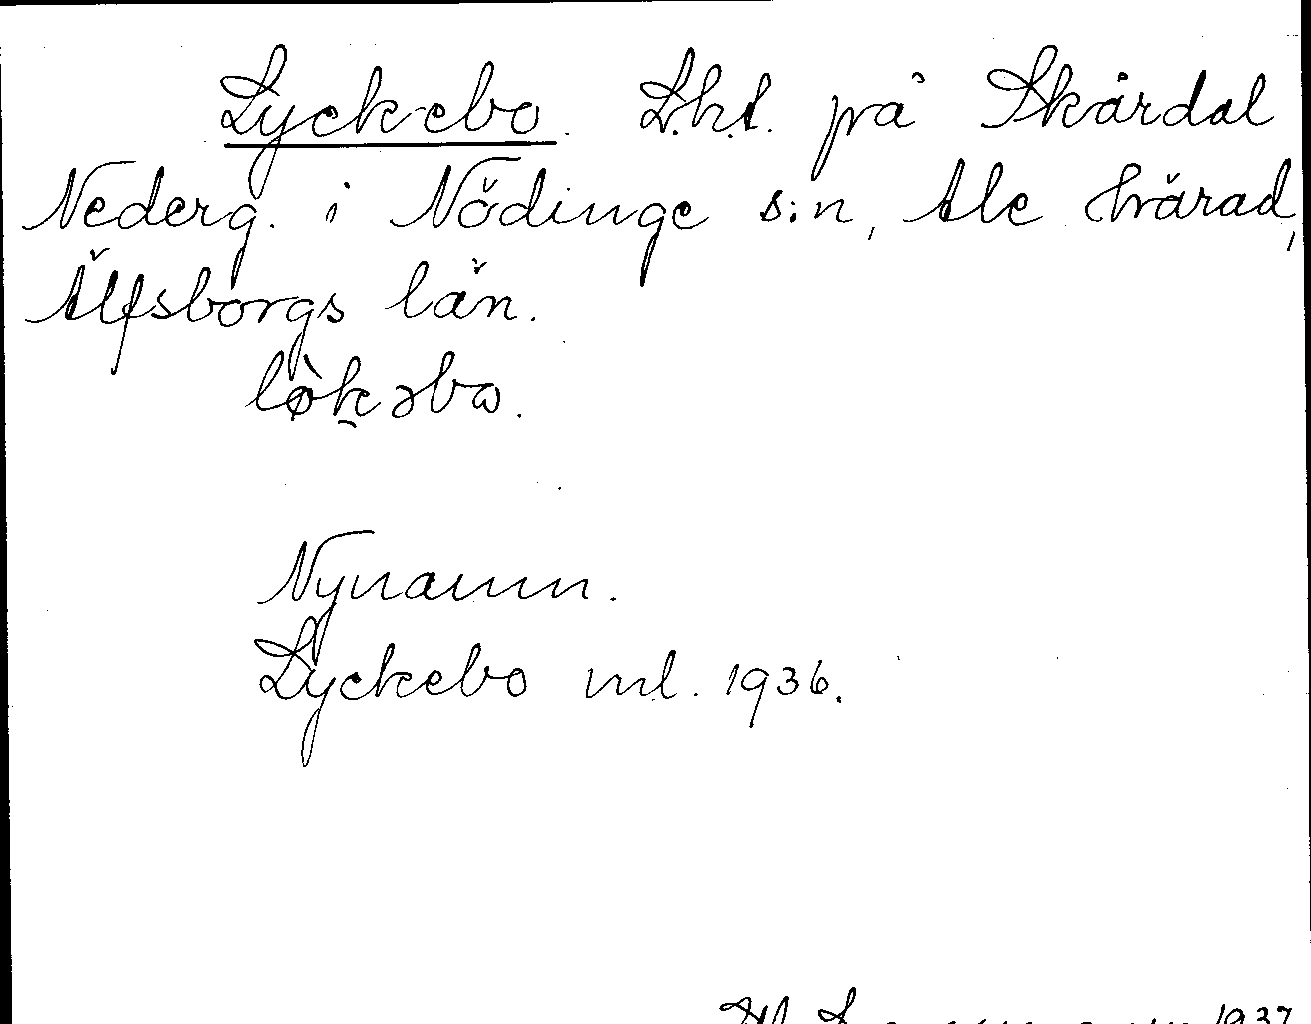 Lyckebo. L.h.t. på Skårdal
Nederg. i Nödinge s:n, Ale härad,
Älfsborgs län.
lø̀k̯əbɷ.
Nynamn.
Lyckebo ml. 1936.
1937